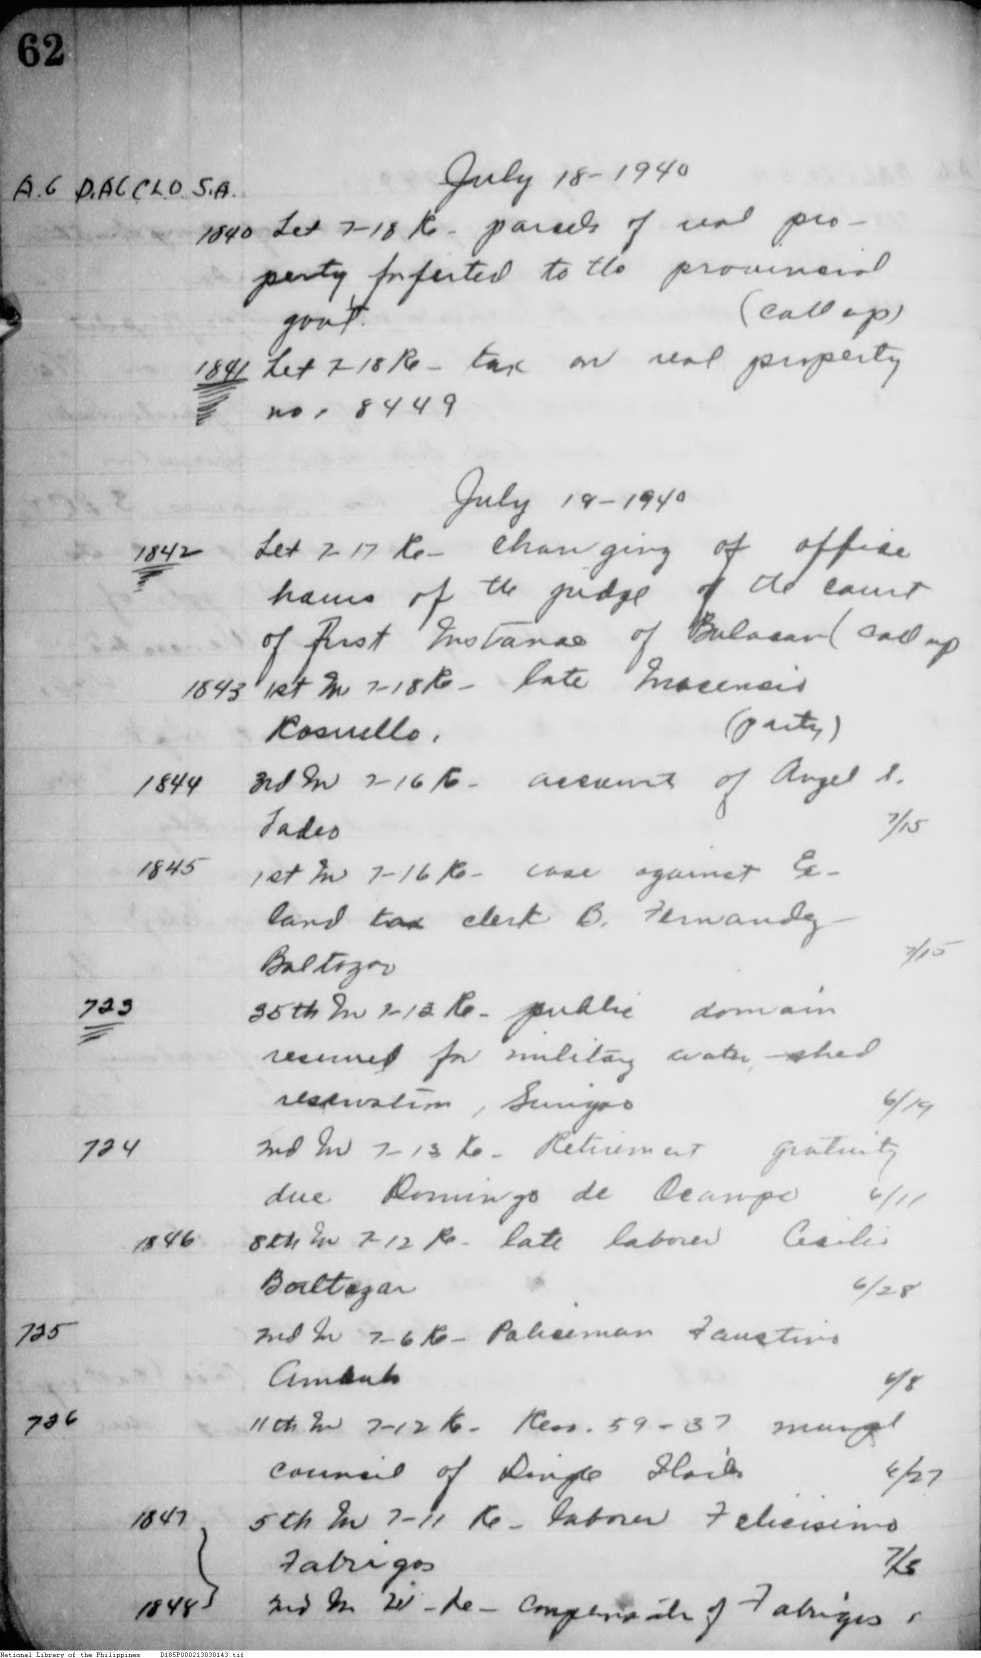 62
July 18-1940
A.G D.AG CLO. S.A.
1840 Let 7-18 Re- parcels of real pro-
perty forfeited to the provincial
govt. (call up)
1841 Let 7-18 Re- tax on real property
no. 8449
July 19-1940
1842 Let 7-17 Re- changing of office
hours of the judge of the court
of First Instance of Bulacan (call up
1843 1st In 7-18 Re- late
Rosuello. (party)
1844 3rd In 7-16 Re- account of Angel S.
Tadeo 7/15
1845 1st In 7-16 Re- case against Ex-
land tax clerk B. Fernandez
Baltazar 7/15
723 35th In 7-12 Re- public domain
reserved for military water-shed
reservation, Surigao 6/19
724 2nd In 7-13 Re- Retirement gratuity
due Domingo de Ocampo 6/11
1846 8th In 7-12 Re- late laborer Cecilio
Baltazar 6/28
725 2nd In 7-6 Re- Policeman Faustino
6/8
726 11th In 7-12 Re- Reso. 59-37 munpl
council of Dingle Iloilo 6/27
1847 5th In 7-11 Re- laborer Felicisimo
Fabrigas 7/3
1848 2nd In - Re- compensatn of Fabrigas.
National Library of the Philippines D185P000213030143.tif